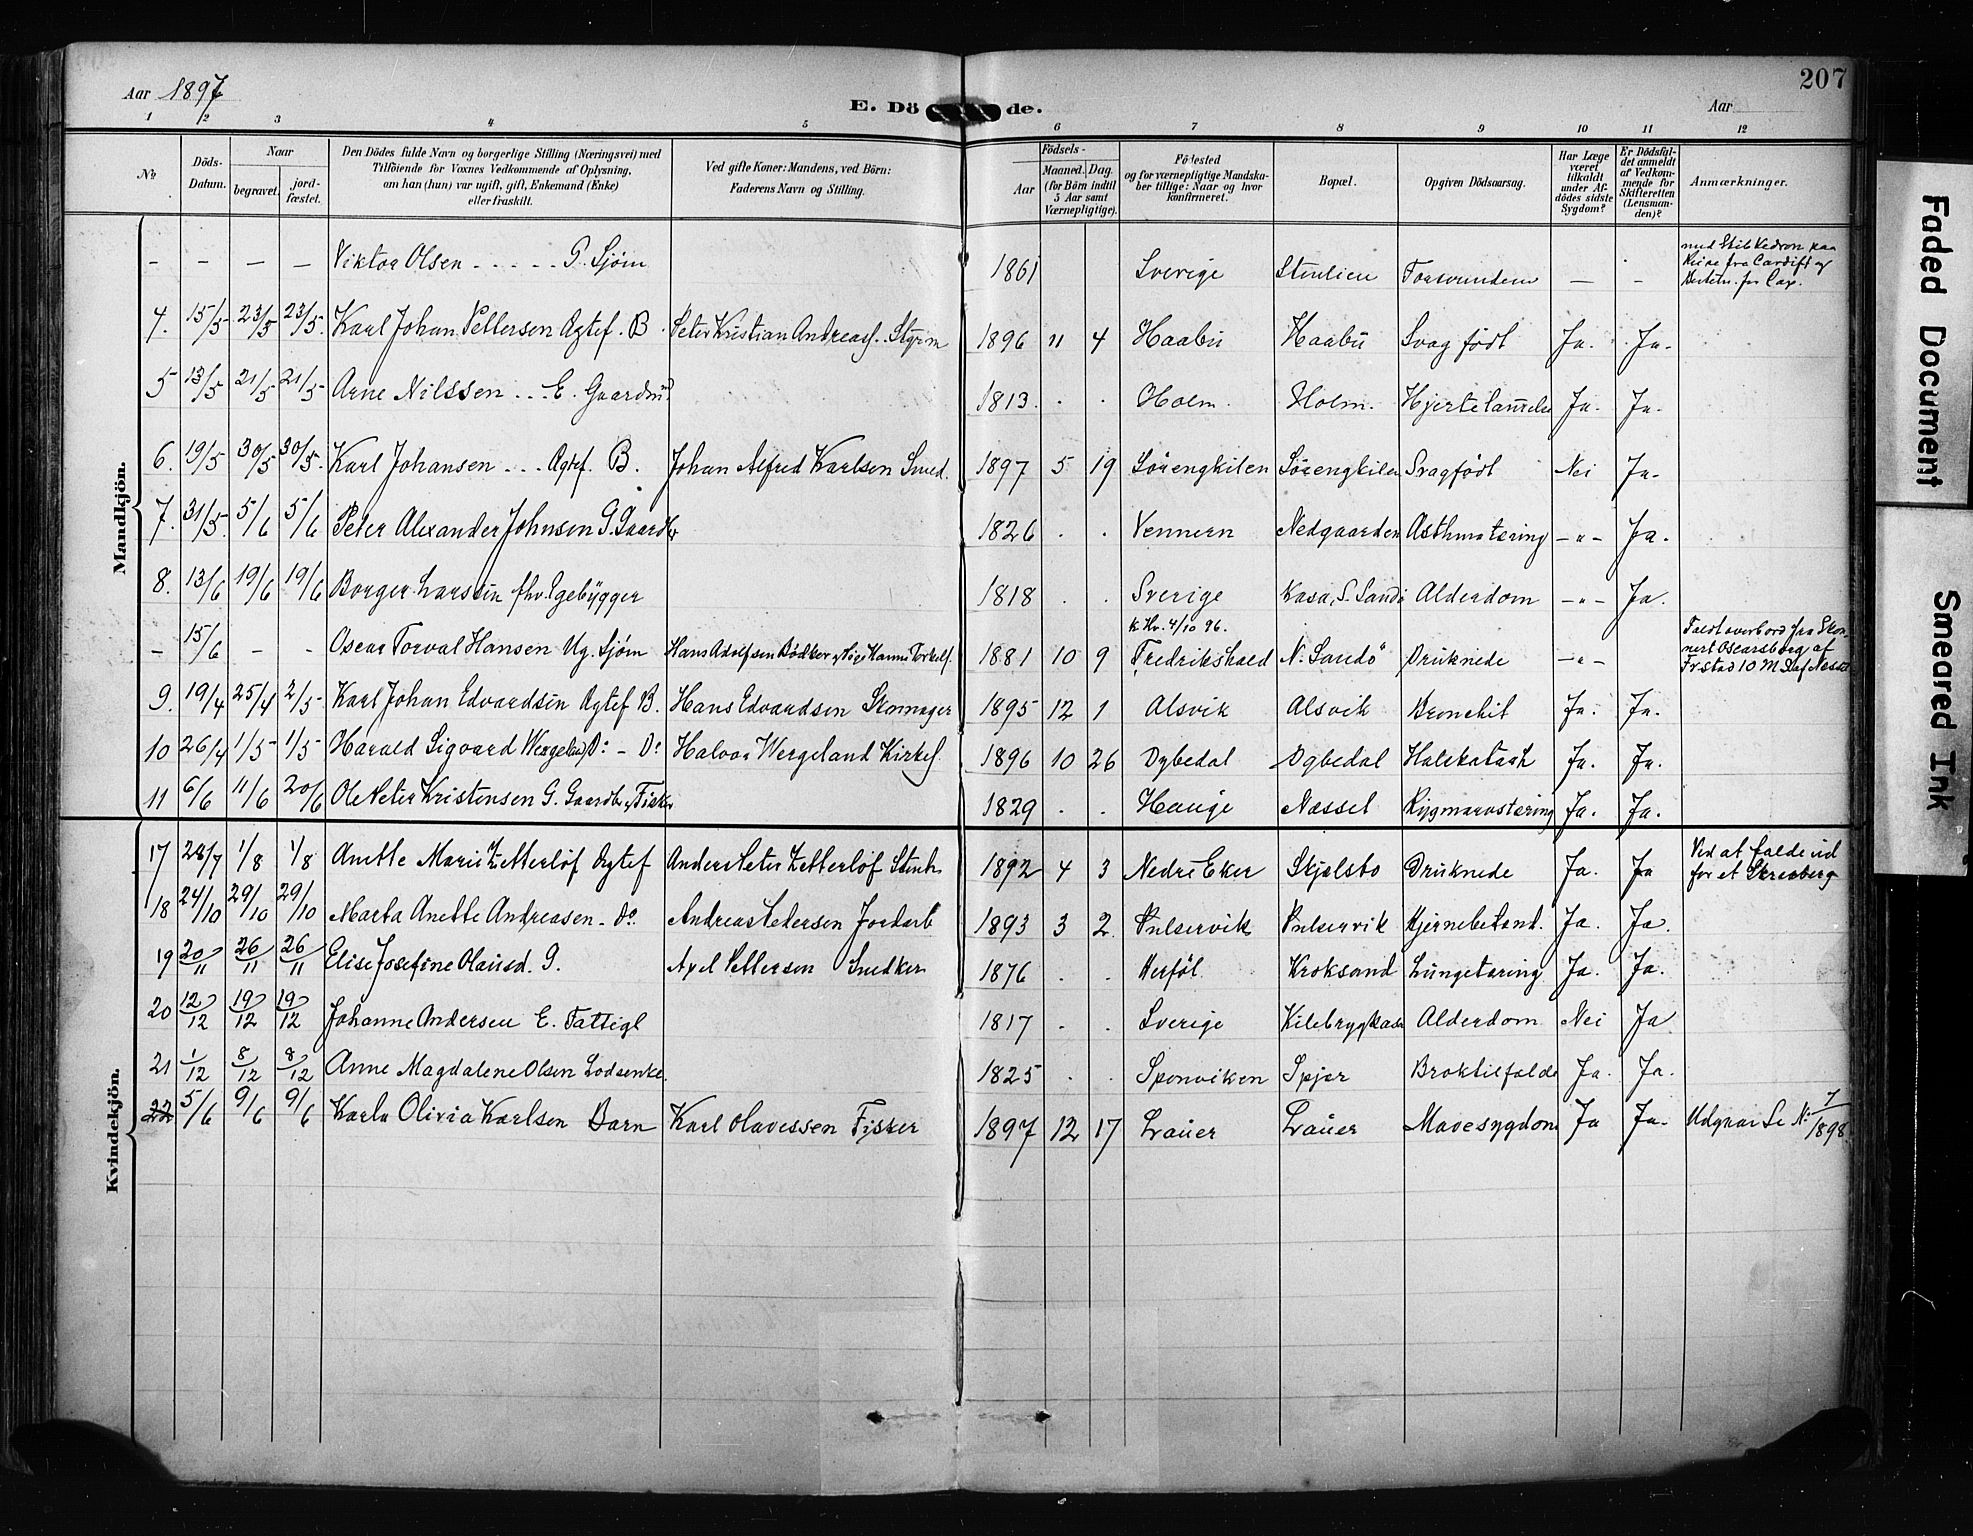 207
Aar 1897
E. Dö de.
Aar
1 2 3 4 5 6 7 8 9 10 11 12
No.
Döds-Datum.
Naar
begravet.
jord-fæstet.
Den Dödes fulde Navn og borgerlige Stilling (Næringsvei) med
Tilföiende for Voxnes Vedkommende af Oplysning,
om han (hun) var ugift, gift, Enkemand (Enke)
eller fraskilt.
Ved gifte Koner: Mandens, ved Börn:
Faderens Navn og Stilling.
Födsels-
Aar
Maaned. Dag.
(for Börn indtil
5 Aar samt
Værnepligtige).
Födested
og for værnepligtige Mandska-
ber tillige: Naar og hvor
konfirmeret.
Bopæl.
Opgiven Dödsaarsag.
Har Læge
været
tilkaldt
under Af-
dödes sidste
Sygdom?
Er Dödsfal-
det anmeldt
af Vedkom-
mende for
Skifteretten
(Lensman-
den)?
Anmærkninger.
Mandkjön.
– – – – Viktor Olsen - - - - - G. Sjöm 1861 Sverige Forsvunden – – med Skib Kedron paa Reise fra Cardiff og
4. 15/5 23/5 23/5. Karl Johan Pettersen Ægtef. B. Peter Kristian Andreass. Styrm 1896 11 4 Haabu Haabu Svag födt Ja. Ja.
5 13/5 21/5 21/5 Arne Nilssen - - - E. Gaardm 1813. . . Holm. Holm. Hjertelammelse Ja. Ja.
6. 19/5 30/5 30/5. Karl Johansen - - - Ægtef. B. Johan Alfred Karlsen Smed. 1897 5 19 Lörengkilen Sörengkilen Svagfödt Nei Ja.
7. 31/5. 5/6 5/6 Peter Alexander Johnsen G. Gaardbr 1826 . . Vennern Nedgaarden Asthma tæring –"– Ja.
8. 13/6 19/6 19/6 Borger Larssen fhv. Egebygger 1818 . . Sverige Kasa, S. Sandö Alderdom –"– Ja.
– 15/6 – – Oscar Torval Hansen Ug. Sjöm Hans Adolfsen Bödker 1881 10 9 k Hv. 4/10 96. Fredrikshald N. Sandö Druknede –"– Faldt overbord fra Skonnert Oscarsborg af Fr.stad 10 M S af Næsset
9. 19/4 25/4 2/5. Karl Johan Edvardsen Ægtef B. Hans Edvardsen Skomager 1895 12 1 Alsvik Alsvik Bronchit Ja. Ja.
10 26/4 1/5 1/5 Harald Sigvard Wergeland Do – Do Halvor Wergeland Kirkes. 1896 10 26 Dybedal Dybedal Halskatarh Ja. Ja.
11 6/6 11/6 20/6 Ole Peter Kristensen G. Gaardbr. Fisker 1829 . . Hauge Næssel Rygmarvstæring Ja. Ja.
Kvindekjön.
17 28/7 1/8 1/8 Anette Marie Zetterlöf Ægtef Anders Peter Zetterlöf Stenh. 1892 4 3 Nedre Eker Skjelsbo Druknede Ja. Ja Ved at falde ud for et Skresberg
18 24/10 29/10 29/10 Marta Anette Andreasen - Do. Andreas Pedersen Jordarb 1893 3 2. Pulservik Pulservik Hjernebetænd. Ja. Ja.
19 20/11 26/11 26/11 Elise Josefine Olausd. G. Axel Pettersen Snedker 1876 . . Herföl Kroksand Lungetæring Ja. Ja.
20 12/12 19/12 19/12 Johanne Andersen E. Fattigl 1817 . . Sverige Kilebrygkasa Alderdom Nei Ja
21 1/12 8/12 8/12 Anne Magdalene Olsen Lodsenke. 1825 . . Sponviken Spjær Broktilfælde Ja. Ja.
22 5/6 9/6 9/6 Karla Olivia Karlsen Barn Karl Olavessen Fisker 1897 12 17 Lauer Lauer Mavesygdom Ja Ja. Udgaar Se No 7/1898
Faded Document
Smeared Ink